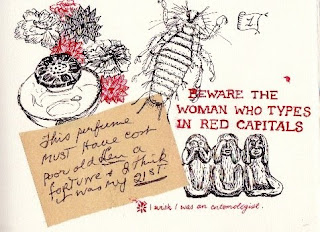 BEWARE THE
WOMAN WHO TYPES
IN RED CAPITALS
This perfume
MUST have cost
poor old Len a
fortune & I think
it was my 21ST
I wish I was an entomologist.